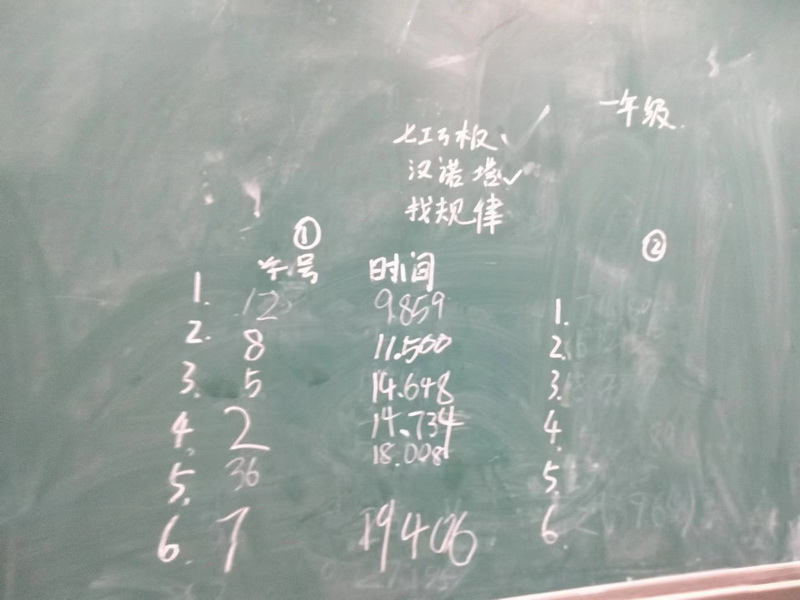 一年级.
七巧板、✓
汉诺塔✓
找规律
①
学号 时间
1. 12 9.859
2. 8 11.500
3. 5 14.648
4. 2 14.734
5. 36 18.008
6. 7 19406
②
1.
2.
3.
4.
5.
6.